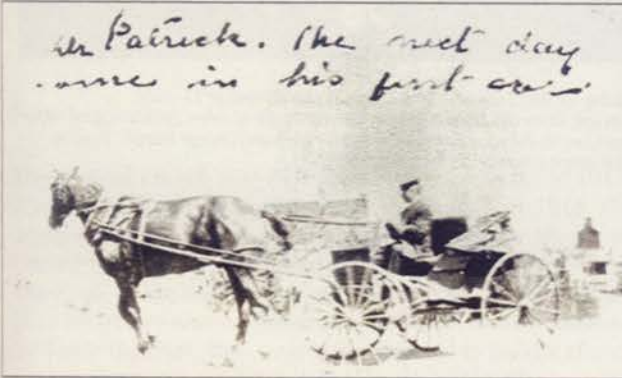 Dr Patrick. The next day
in his first car